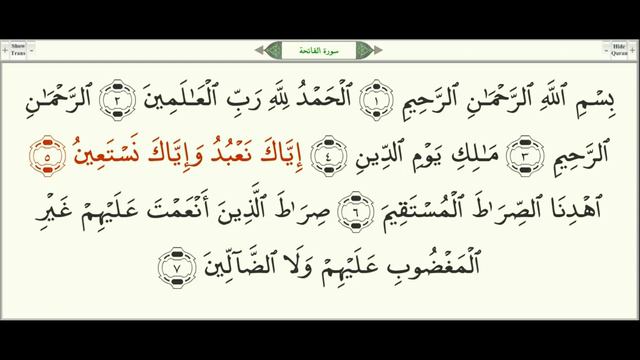 Show Trans
سورة الفاتحة
Hide Quran
بِسْمِ ٱللَّهِ ٱلرَّحْمَـٰنِ ٱلرَّحِيمِ ١ ٱلْحَمْدُ لِلَّهِ رَبِّ ٱلْعَـٰلَمِينَ ٢ ٱلرَّحْمَـٰنِ
ٱلرَّحِيمِ ٣ مَـٰلِكِ يَوْمِ ٱلدِّينِ ٤ إِيَّاكَ نَعْبُدُ وَإِيَّاكَ نَسْتَعِينُ ٥
ٱهْدِنَا ٱلصِّرَٰطَ ٱلْمُسْتَقِيمَ ٦ صِرَٰطَ ٱلَّذِينَ أَنْعَمْتَ عَلَيْهِمْ غَيْرِ
ٱلْمَغْضُوبِ عَلَيْهِمْ وَلَا ٱلضَّآلِّينَ ٧